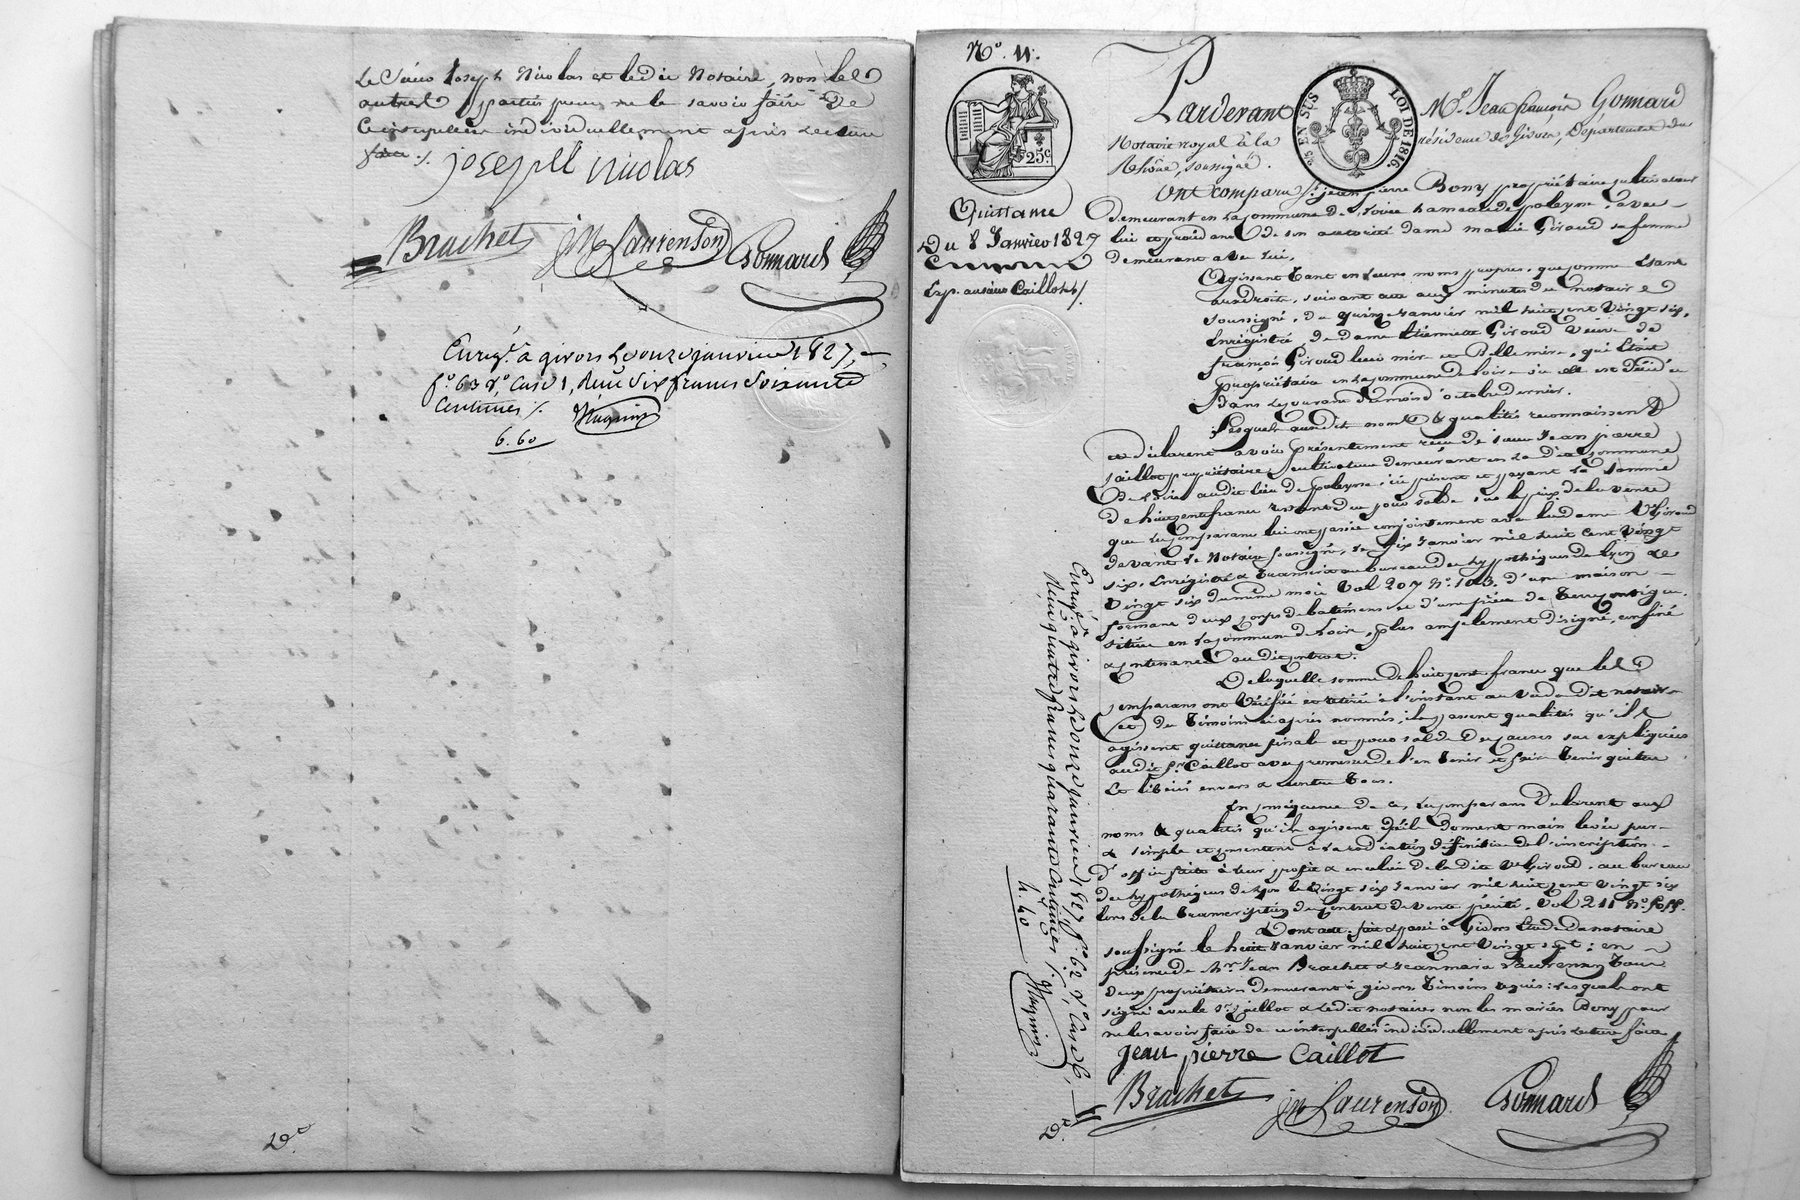 Le Sieur Joseph Nicolas et ledit Notaire, non les
autres parties pour ne le savoir faire de
ce interpellées individuellement après lecture
faite ./.
joseph nicolas
Brachet jm Laurenson Gonnard
Enreg.é à givors le onze janvier 1827,
f.o 63 r.o Case 1, Reçu Six francs Soixante
Centimes ./.
6.60
D.e
N.o 11.
25c.
Quittance
Du 8 Janvier 1827
Exp. au sieur Caillot ./.
Pardevant M.e Jean françois Gonnard
25 EN SUS LOI DE 1816.
Notaire royal à la résidence de Givors, Département du
Rhône, soussigné.
Ont comparu S.r jean pierre Bony propriétaire cultivateur
demeurant en la commune de Loire hameau de , avec
lui et procédant de son autorité dame marie Giroud sa femme
demeurant avec lui,
Agissant tant en leurs noms propres, que comme étant
aux droits, suivant acte aux minutes du notaire
soussigné, du quinze janvier mil huit cent vingt six,
Enrégistré, de dame Giroud veuve de
françois Giroud leur mère et Bellemère, qui était
propriétaire en la commune de Loire où elle est décédée
Dans le courant du mois d'octobre dernier.
Lesquels auxdits noms & qualités reconnaissent
et déclarent avoir présentement reçu de sieur Jean pierre
Caillot propriétaire cultivateur demeurant en la dite commune
De Loire audit lieu de ici présent et payant la somme
de huit cent francs restant due pour solde sur le prix de la vente
que les comparans lui ont passée conjointement avec la dame V.e Giroud
devant le Notaire soussigné, le six Janvier mil huit cent vingt
six, Enrégistré & transcrit au bureau des hypothèques de Lyon le
vingt six du même mois vol 207 N.o 103. d'une maison
formant deux corps de bâtimens et d'une pièce de terre contigue
située en la commune de Loire, plus amplement désigné, confiné
& contenancé audit contrat.
De laquelle somme de huit cent francs que les
comparans ont vérifiée et retirée à l'instant au vu du dit notaire
et des témoins ci après nommés, ils passent qualités qu'ils
agissent quittance finale et pour solde des causes sus expliquées
audit S.r Caillot avec promesse de l'en tenir et faire tenir quitte
et libéré envers & contre tous.
En conséquence de ce, les comparans Déclarent aux
noms & qualités qu'ils agissent qu'ils donnent main levée pure
& simple et consentent à la radiation définitive de l'inscription
d'office faite à leur profit & à celui de la dite V.e Giroud, au bureau
des hypothèques de Lyon le vingt six Janvier mil huit cent vingt six
lors de la transcription du contrat de vente précité, vol 211 N.o
Dont acte. fait & passé à Givors Etude de notaire
soussigné le huit Janvier mil huit cent vingt sept: en
présence de M.r Jean Brachet & Jean marie Laurenson tous
deux propriétaires demeurant à givors témoins requis: Lesquels ont
signé avec le S.r Caillot & ledit notaire non les mariés Bony pour
ne le savoir faire de ce interpellés individuellement après lecture faite
Enreg.é à givors le onze janvier 1827 f.o 62 v.o Case 6,
Reçu quatre francs quarante Centimes ./.
4.40
D.e
jean pierre Caillot
Brachet jm Laurenson Gonnard